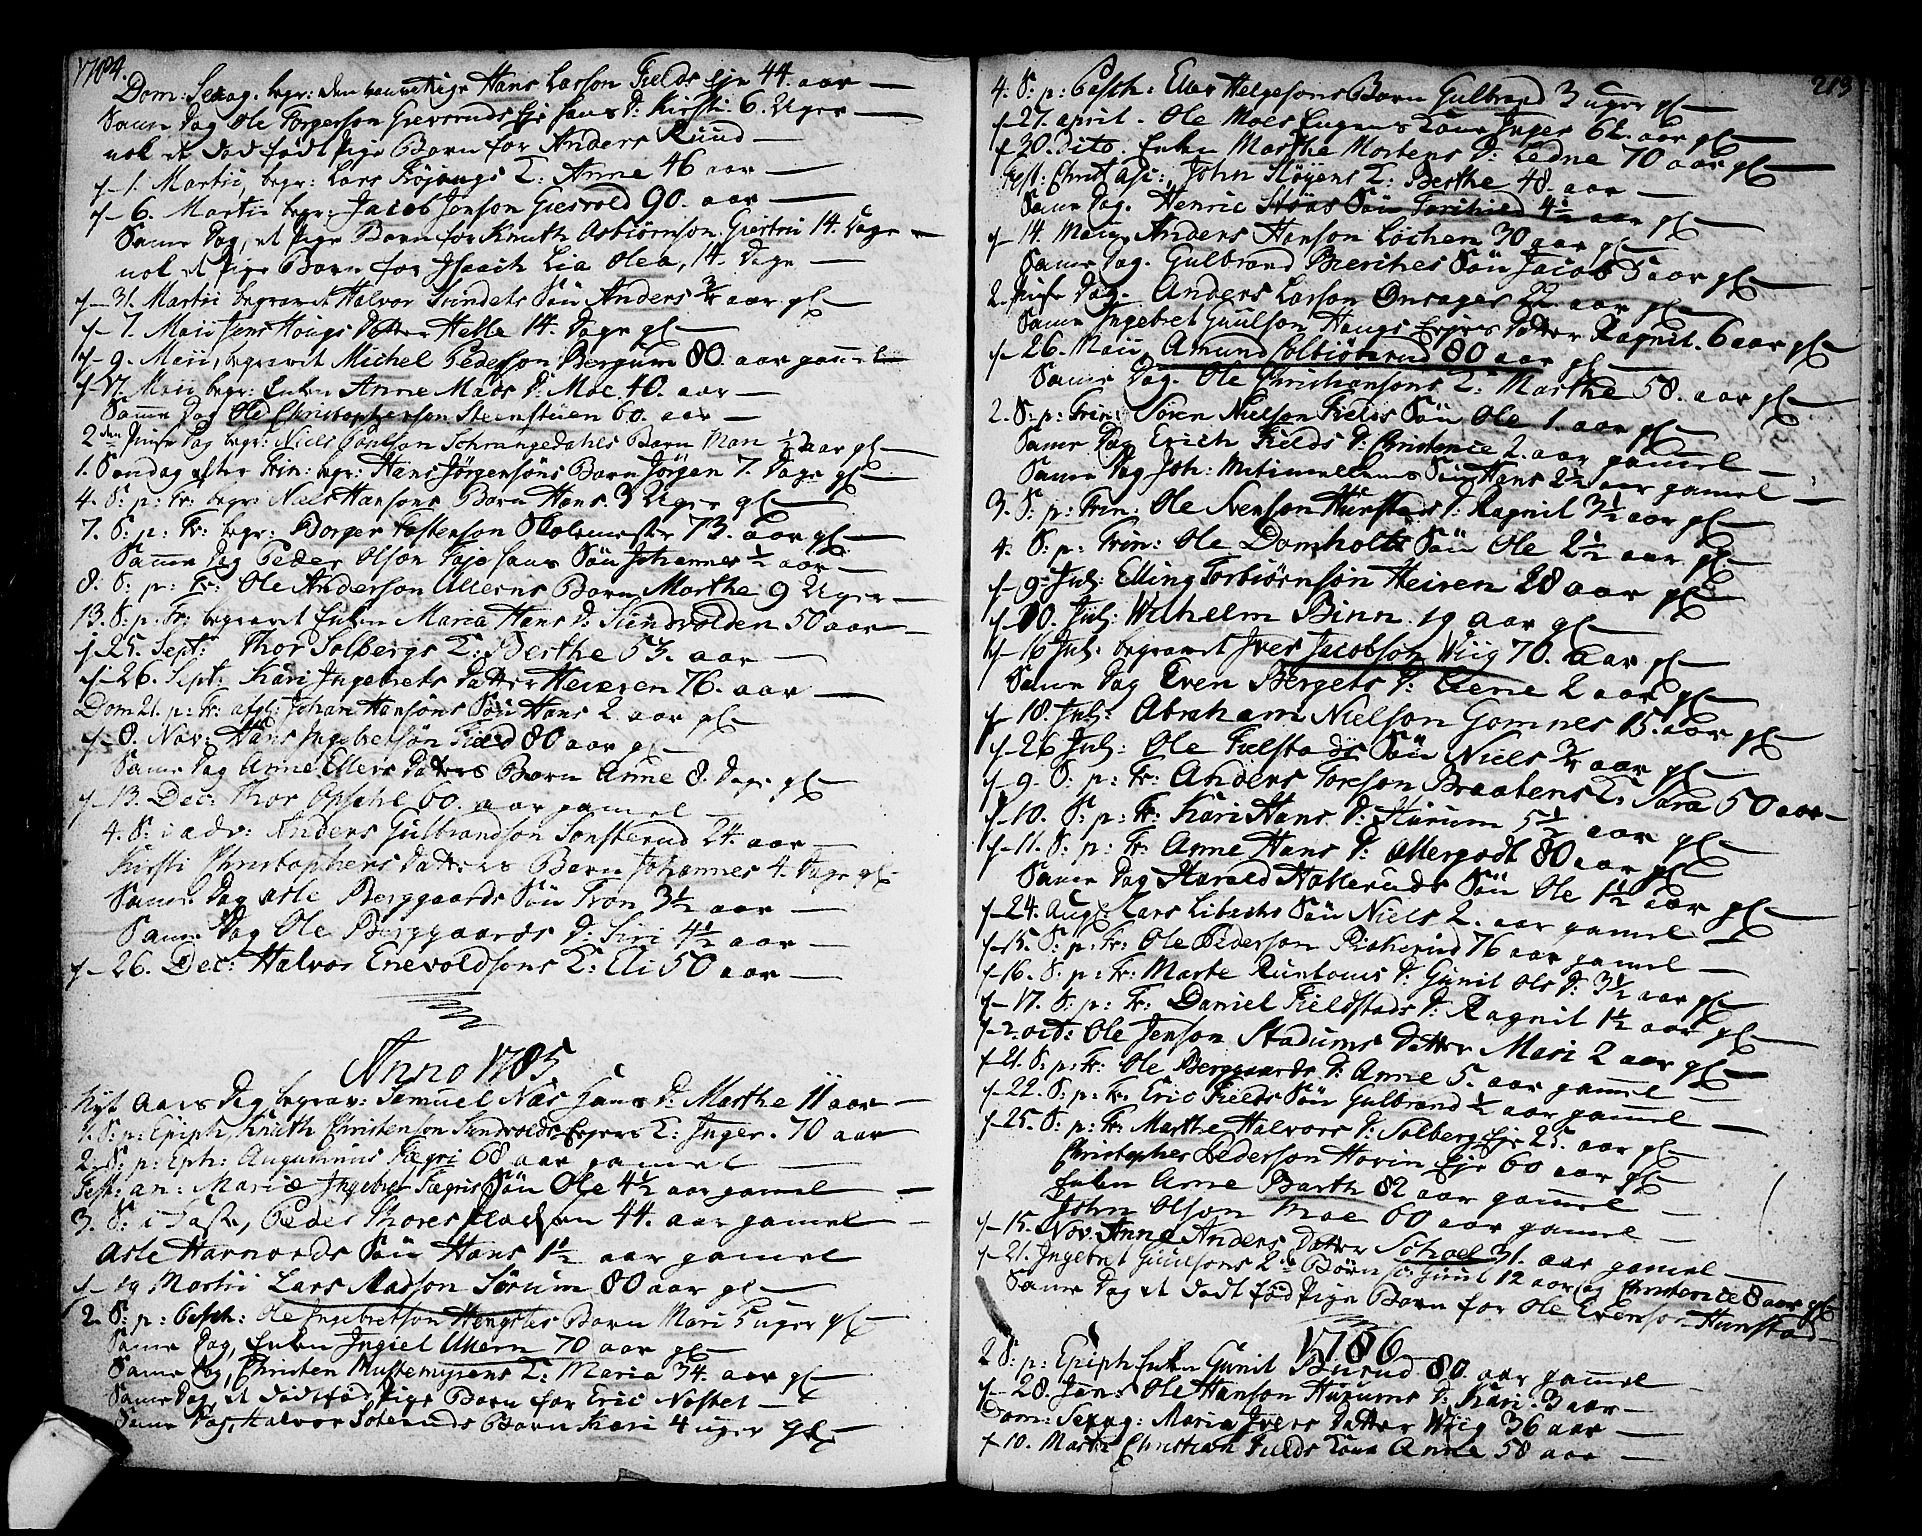 1784.
Dom: Sexag. begr: den vanvittige Hans Larson Fields Eje 44. aar
Samme Dag Ole Torgerson Greversruds Eje hans D: Kirsti 6. Uger
nok et død født Pige Barn for Anders Ruud
d. 1. Martii, begr: Lars Frøjangs K: Anne 46 aar
d. 6. Martii begr: Jacob Jonson Giesvold 90. aar
Samme Dag, et Pige Barn for Knuth Asbiørnson 14. Dage
nok et Pige Barn for Isaach Lia Olea, 14. Dage
d. 31. Martii begravet Halvor Svindets Søn Anders 3/4 aar gl
d. 7. Maii Jens Hougs Datter Helle 14. Dage gl
d. 9. Maii, begravet Michel Pederson Bergum 80. aar gammel
d. 17. Maii begr: Enken Anne Mads D: Moe 40. aar
Samme Dag Ole Christopherson Steenstuen 60. aar
2den Pinse Dag begr: Niels Poulson Schrangedahls Barn Mari 1/2 aar gl
1. Søndag efter Trin: begr: Hans Jørgensøns Barn Jørgen 7. Dage gl
4. S: p: Tr: begr: Niels Hansons Barn Hans 3 Uger gl
7. S: p: Tr: begr: Borger Tostenson Skolemester 73. aar gl
Samme Dag Peder Olson hans Søn Johannes 1/2 aar
8. S: p: Tr: Ole Anderson Ullerns Barn Marthe 9 Uger
13. S: p: Tr: begravet Enken Maria Hans D: Sundvolden 50 aar
d. 25. Sept: Thor Solbergs K: Berthe 53. aar
d. 26. Sept: Kari Ingebrets Datter Heieren 76. aar
Dom 21. p: Tr: afgl: Johan Hansøns Søn Hans 2. aar gl
d. 8. Nov: Hans Ingebretsøn Field 80 aar gl
Samme Dag Anne Ellens Datters Barn Anne 8. Dage gl
d. 13. Dec: Thor Opsahl 60. aar gamel
4. S: i adv: Anders Gulbrandson Sønsterud 24. aar
Kirsti Christophers Datters Barn Johannes 4. Dage gl
Samme Dag Asle Berggaards Søn Tron 3 1/2 aar
Samme Dag Ole Berggaards D: Siri 4 1/2 aar
d. 26. Dec: Halvor Enevoldsøns K: Eli 50 aar
Anno 1785
Nyt Aars Dag begrav: Samuel Næs hans D: Marthe 11 aar
1. S: p: Epiph, Knuth Christenson Sundvolds Ejers K: Inger. 70 aar
2. S: p: Eph: Augustinus Fægri 68 aar gamel
Fest: an: Mariæ Ingebret Fægris Søn Ole 4 1/2 aar gamel
3. S: i Faste, Peder Thores 44. aar gamel
Asle Harvords Søn Hans 1 1/2 aar gamel
d. 19 Martii Lars Madson Sørum 80 aar gl
2. S: p: Pasch: Ole Ingebretson Hengstes Barn Mari 5 uger gl
Samme Dag, Enken Ingiel Ullern 70 aar gl
Samme Dag, Christen Mustemyrens K: Maria 34. aar gl
Samme Dag, et dødfødt Pige Barn for Eric Nøstet
Samme Dag, Halvor Solruds Barn Kari 4 uger gl
213
4. S: p: Pasch: Elas Helgesøns Barn Gulbrand 3 uger gl
d. 27. april. Ole Moes Kone Inger 62. aar gl
d. 30. Dito. Enken Marthe Mortens D: Ledne 70 aar gl
Fest: Christ Asc: John Støyens K: Berthe 48. aar
Samme Dag. Henric Støas Søn 4 1/2 aar gl
d. 14. Maii Anders Hanson Løchen 30 aar gl
Samme Dag. Gulbrand Bierches Søn Jacob 5 aar gl
2. Pinse Dag. Anders Larson Onsager 22. aar gl
Samme Ingebret Guulson Hougs Ejers Datter Ragnil. 6 aar gl
d. 26. Maii Amund Colbiørnrud 80 aar gl
Samme Dag. Ole Christiansons K: Marthe 58. aar gl
2. S: p: Trin: Søren Nielson Fields Søn Ole 1. aar gl
Samme Dag Erich Fields D: Christence 2. aar gammel
Samme Dag Joh: Søn Hans 2 1/2 aar gamel
3. S: p: Trin: Ole Svenson Hunstads D: Ragnil 3 1/2 aar gl
4. S: p: Trin: Ole Domholts Søn Ole 2 1/2 aar gl
d. 9. Jul: Elling Torbiørnsøn Heiren 28 aar gl
d. 10. Jul: Wilhelm Binn 19 aar gl
d. 16 Jul: begravet Iver Jacobson Wiig 70. aar gl
Samme Dag Even Bergets D: Lene 2 aar gl
d. 18. Jul: Abraham Nielson Gomnes 15. aar gl
d. 26 Jul: Ole Fielstads Søn Niels 3/4 aar gl
d. 9. S: p: Tr: Anders Toreson Braatens K: Sara 50 aar
d. 10. S: p: Tr: Kari Hans D: Hurum 5 1/2 aar gl
d. 11. S: p: Tr: Anne Hans D: Ollergodt 80 aar gl
Samme Dag Harald Hallerudds Søn Ole 1 1/2 aar gl
d. 24. Aug: Lars Libachs Søn Niels 2. aar gamel
d. 15. S: p: Tr: Ole Pederson Risherud 76 aar gamel
d. 16. S: p: Tr: Marte D: Gunil Ols D: 3 1/2 aar gl
d. 17. S: p: Tr: Daniel Fieldstads D: Ragnil 1 1/2 aar gl
d. 2. oct: Ole Jenson Stadums Datter Mari 2 aar gl
d. 21. S: p: Tr: Ole Berggaards D: Anne 5. aar gamel
d. 22. S: p: Tr: Eric Fields Søn Gulbrand 1/2 aar gamel
d. 25. S: p: Tr: Marthe Halvors D: Solberg Eje 25. aar gl
Christopher Pederson Hovin Eje 60 aar gl
Enken Anne Barth 82 aar gamel
John Olson Moe 60 aar gamel
d. 15. Nov. Anne Anders Datter Schoel 31. aar gamel
d. 21. Ingebret Guulsons 2de Børn sc: Guul 12 aar og Christence 8 aar gl
Samme Dag et dødt fød Pige Barn for Ole Evenson Hunstad
1786
2 S: p: Epiph Enken Gunil Busud 80. aar gammel
d. 28. Jan: Ole Hanson Hurums D: Kari. 3 aar
Dom: Sexag: Maria Ivers Datter Wiig 36 aar
d. 10. Martii Christian Fields Kone Anne 58 aar